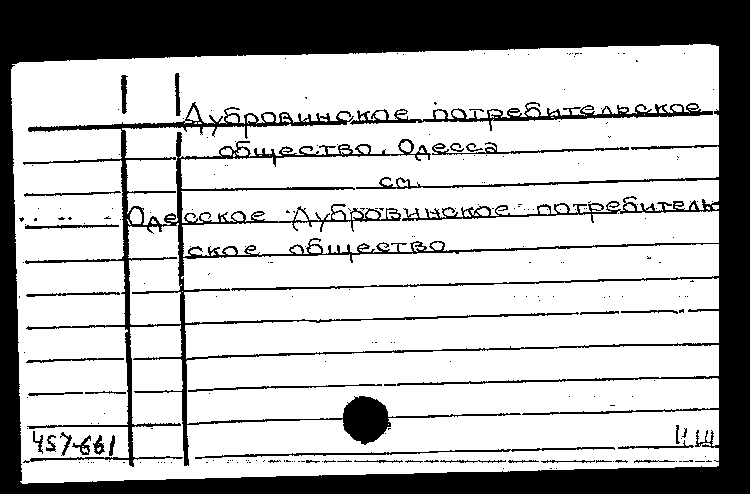 Дубровинское потребительское
общество. Одесса
см.
Одесское Дубровинское потребитель
ское общество
457-661
НШ